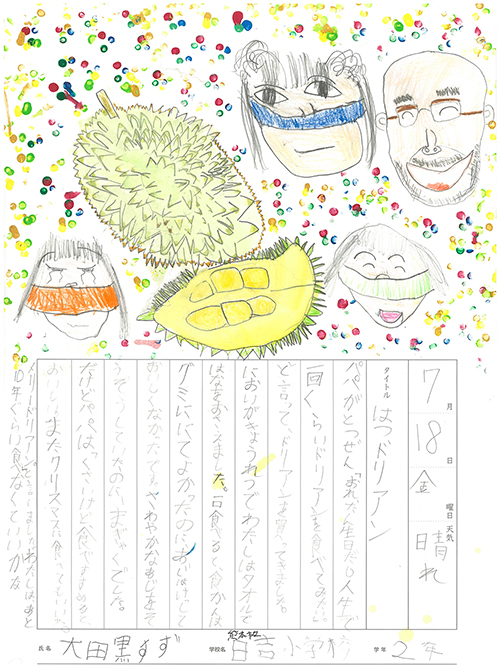 7月18日金曜日 天気 晴れ
タイトル はつドリアン
パパがとつぜん「人生で
一回くらいドリアンを食べてみたい」
と言って、ドリアンを買ってきました。
においがきょうれつで、わたしはタオルで
はなをおさえました。一口食べると、食かんは
グミににてよかったのに、あじはけして
おいしくなかったです。さわやかなあじをそ
うぞうしていたのに、まぎゃくでした。
だけどパパは「くさいけど食べすすめると
おいしい。またクリスマスに食べてもいい
メリードリアン」と言いました。わたしはあと
10年くらい食べなくていいかな
氏名 大田黒すず 学校名 日吉小学校 学年 2年